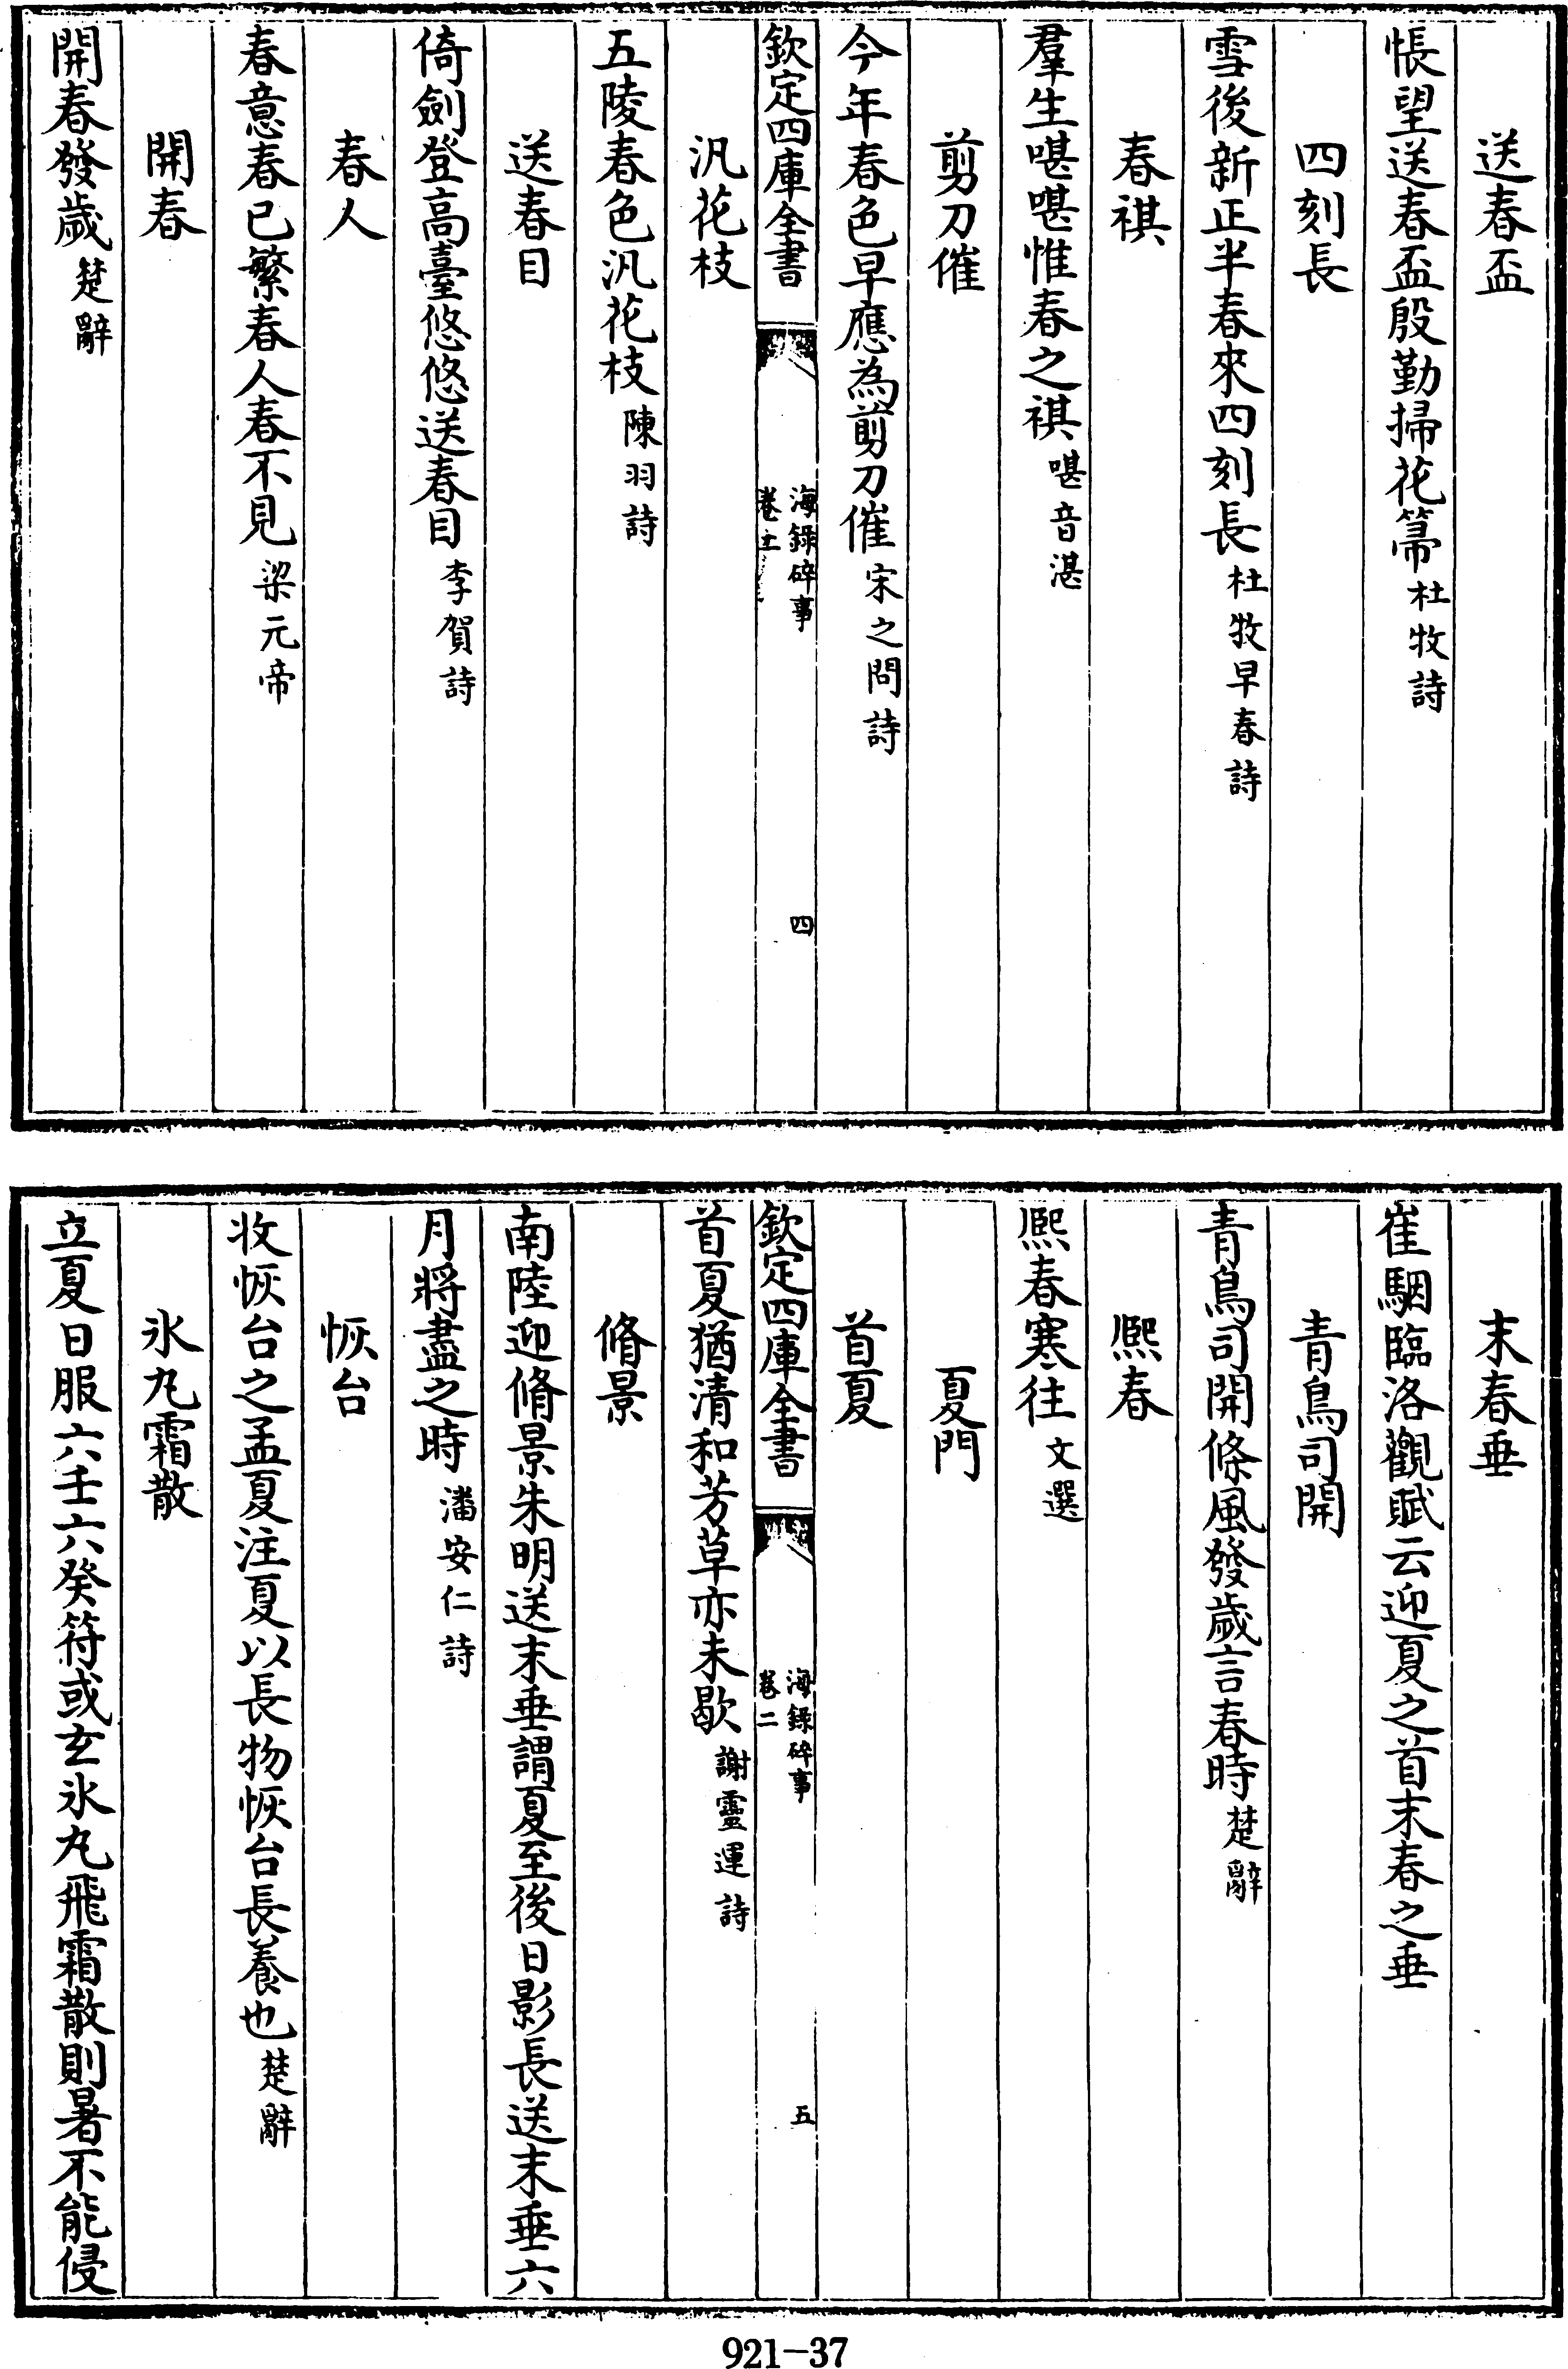 送春盃
悵望送春盃殷勤掃花箒杜牧詩
四刻長
雪後新正半春來四刻長杜牧早春詩
春祺
羣生啿啿惟春之祺啿音湛
剪刀催
今年春色早應為剪刀催宋之問詩
欽定四庫全書
海錄碎事
四
汎花枝
五陵春色汎花枝陳羽詩
送春目
倚劍登高臺悠悠送春目李賀詩
春人
春意春已繁春人春不見梁元帝
開春
開春發歲楚辭
末春垂
崔駰臨洛觀賦云迎夏之首末春之垂
青鳥司開
青鳥司開條風發歲言春時楚辭
熈春
熈春寒往文選
夏門
首夏
欽定四庫全書
海錄碎事
卷二
五
首夏猶清和芳草亦未歇謝靈運詩
脩景
南陸迎脩景朱明送末垂謂夏至後日影長送末垂六
月將盡之時潘安仁詩
恢台
收恢台之孟夏注夏以長物恢台長養也楚辭
氷丸霜散
立夏日服六壬六癸符或玄氷丸飛霜散則暑不能侵
921-37